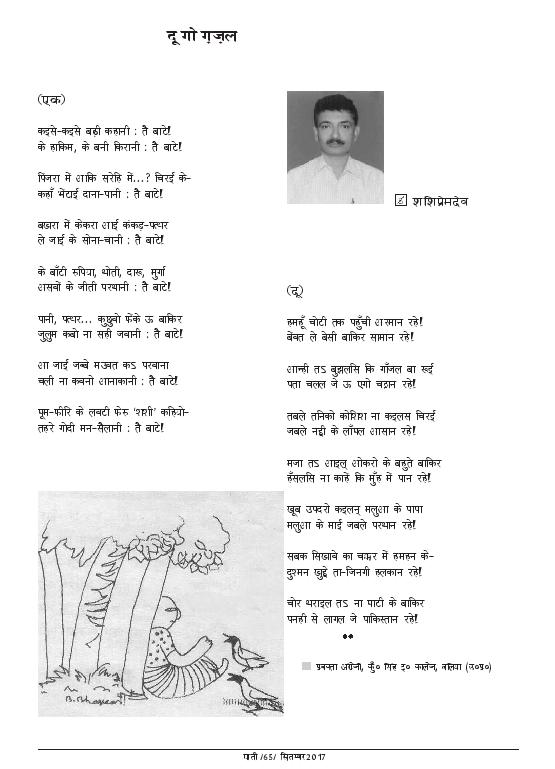 दू गो ग़ज़ल
(एक)
कइसे-कइसे बढ़ी कहानी : तै बाटे!
के हाकिम, के बनी किरानी : तै बाटे!
पिंजरा में आकि सरेहि में...? चिरई के-
कहाँ भेंटाई दाना-पानी : तै बाटे!
बखरा में केकरा आई कंकड़-पत्थर
ले जाई के सोना-चानी : तै बाटे!
के बाँटी रुपिया, धोती, दारू, मुर्गा
असवों के जीती परधानी : तै बाटे!
पानी, पत्थर... कुछुवो फेंके ऊ बाकिर
जुलुम कबो ना सही जवानी : तै बाटे!
आ जाई जब्बे मउवत कऽ परवाना
चली ना कवनो आनाकानी : तै बाटे!
घूम-फीरि के लवटी फेरु 'शशी' कहियो-
तहरे गोदी मन-सैलानी : तै बाटे!
शशिप्रेमदेव
(दू)
हमहूँ चोटी तक पहुँची अरमान रहे!
बेंवत ले बेसी बाकिर सामान रहे!
आन्ही तऽ बुझलसि कि गाँजल बा रूई
पता चलल जे ऊ एगो चट्टान रहे!
तबले तनिको कोशिश ना कइलस चिरई
जबले नद्दी के लाँघल आसान रहे!
मजा तऽ आइल् ओकरो के बहुते बाकिर
हँसलसि ना काहें कि मुँह में पान रहे!
खूब उपदरो कइलन् मलुआ के पापा
मलुआ के माई जबले परधान रहे!
सबक सिखावे का चक्कर में हमहन के-
दुश्मन खुद्दे ता-जिनगी हलकान रहे!
चोर धराइल तऽ ना पाटी के बाकिर
पनही से लागल जे पाकिस्तान रहे!
प्रवक्ता अंग्रेजी, कुँ० सिंह इ० कालेज, बलिया (उ०प्र०)
पाती /65/ सितम्बर 2017